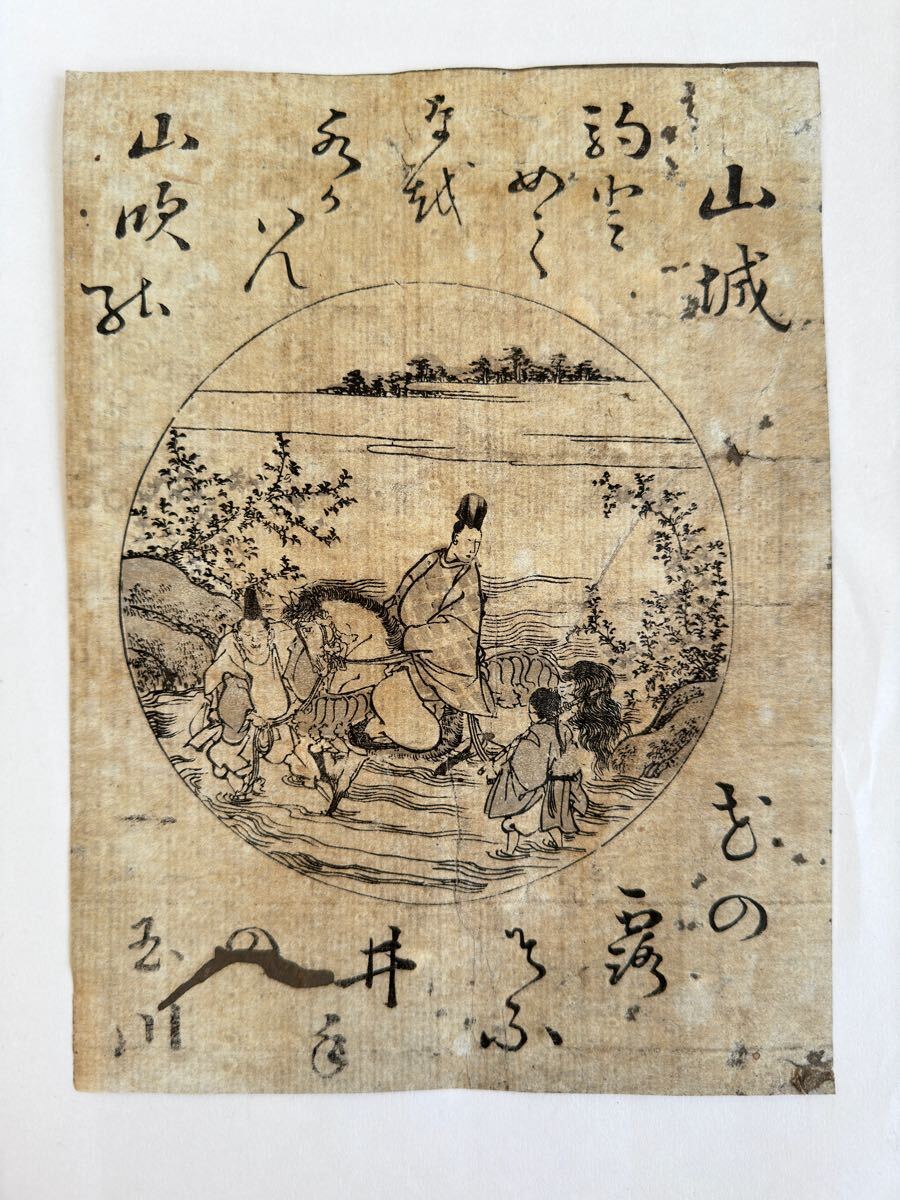 山城
駒と
めて
な越
水か
はん
山吹能
花の
露
そふ
井手
の
玉川